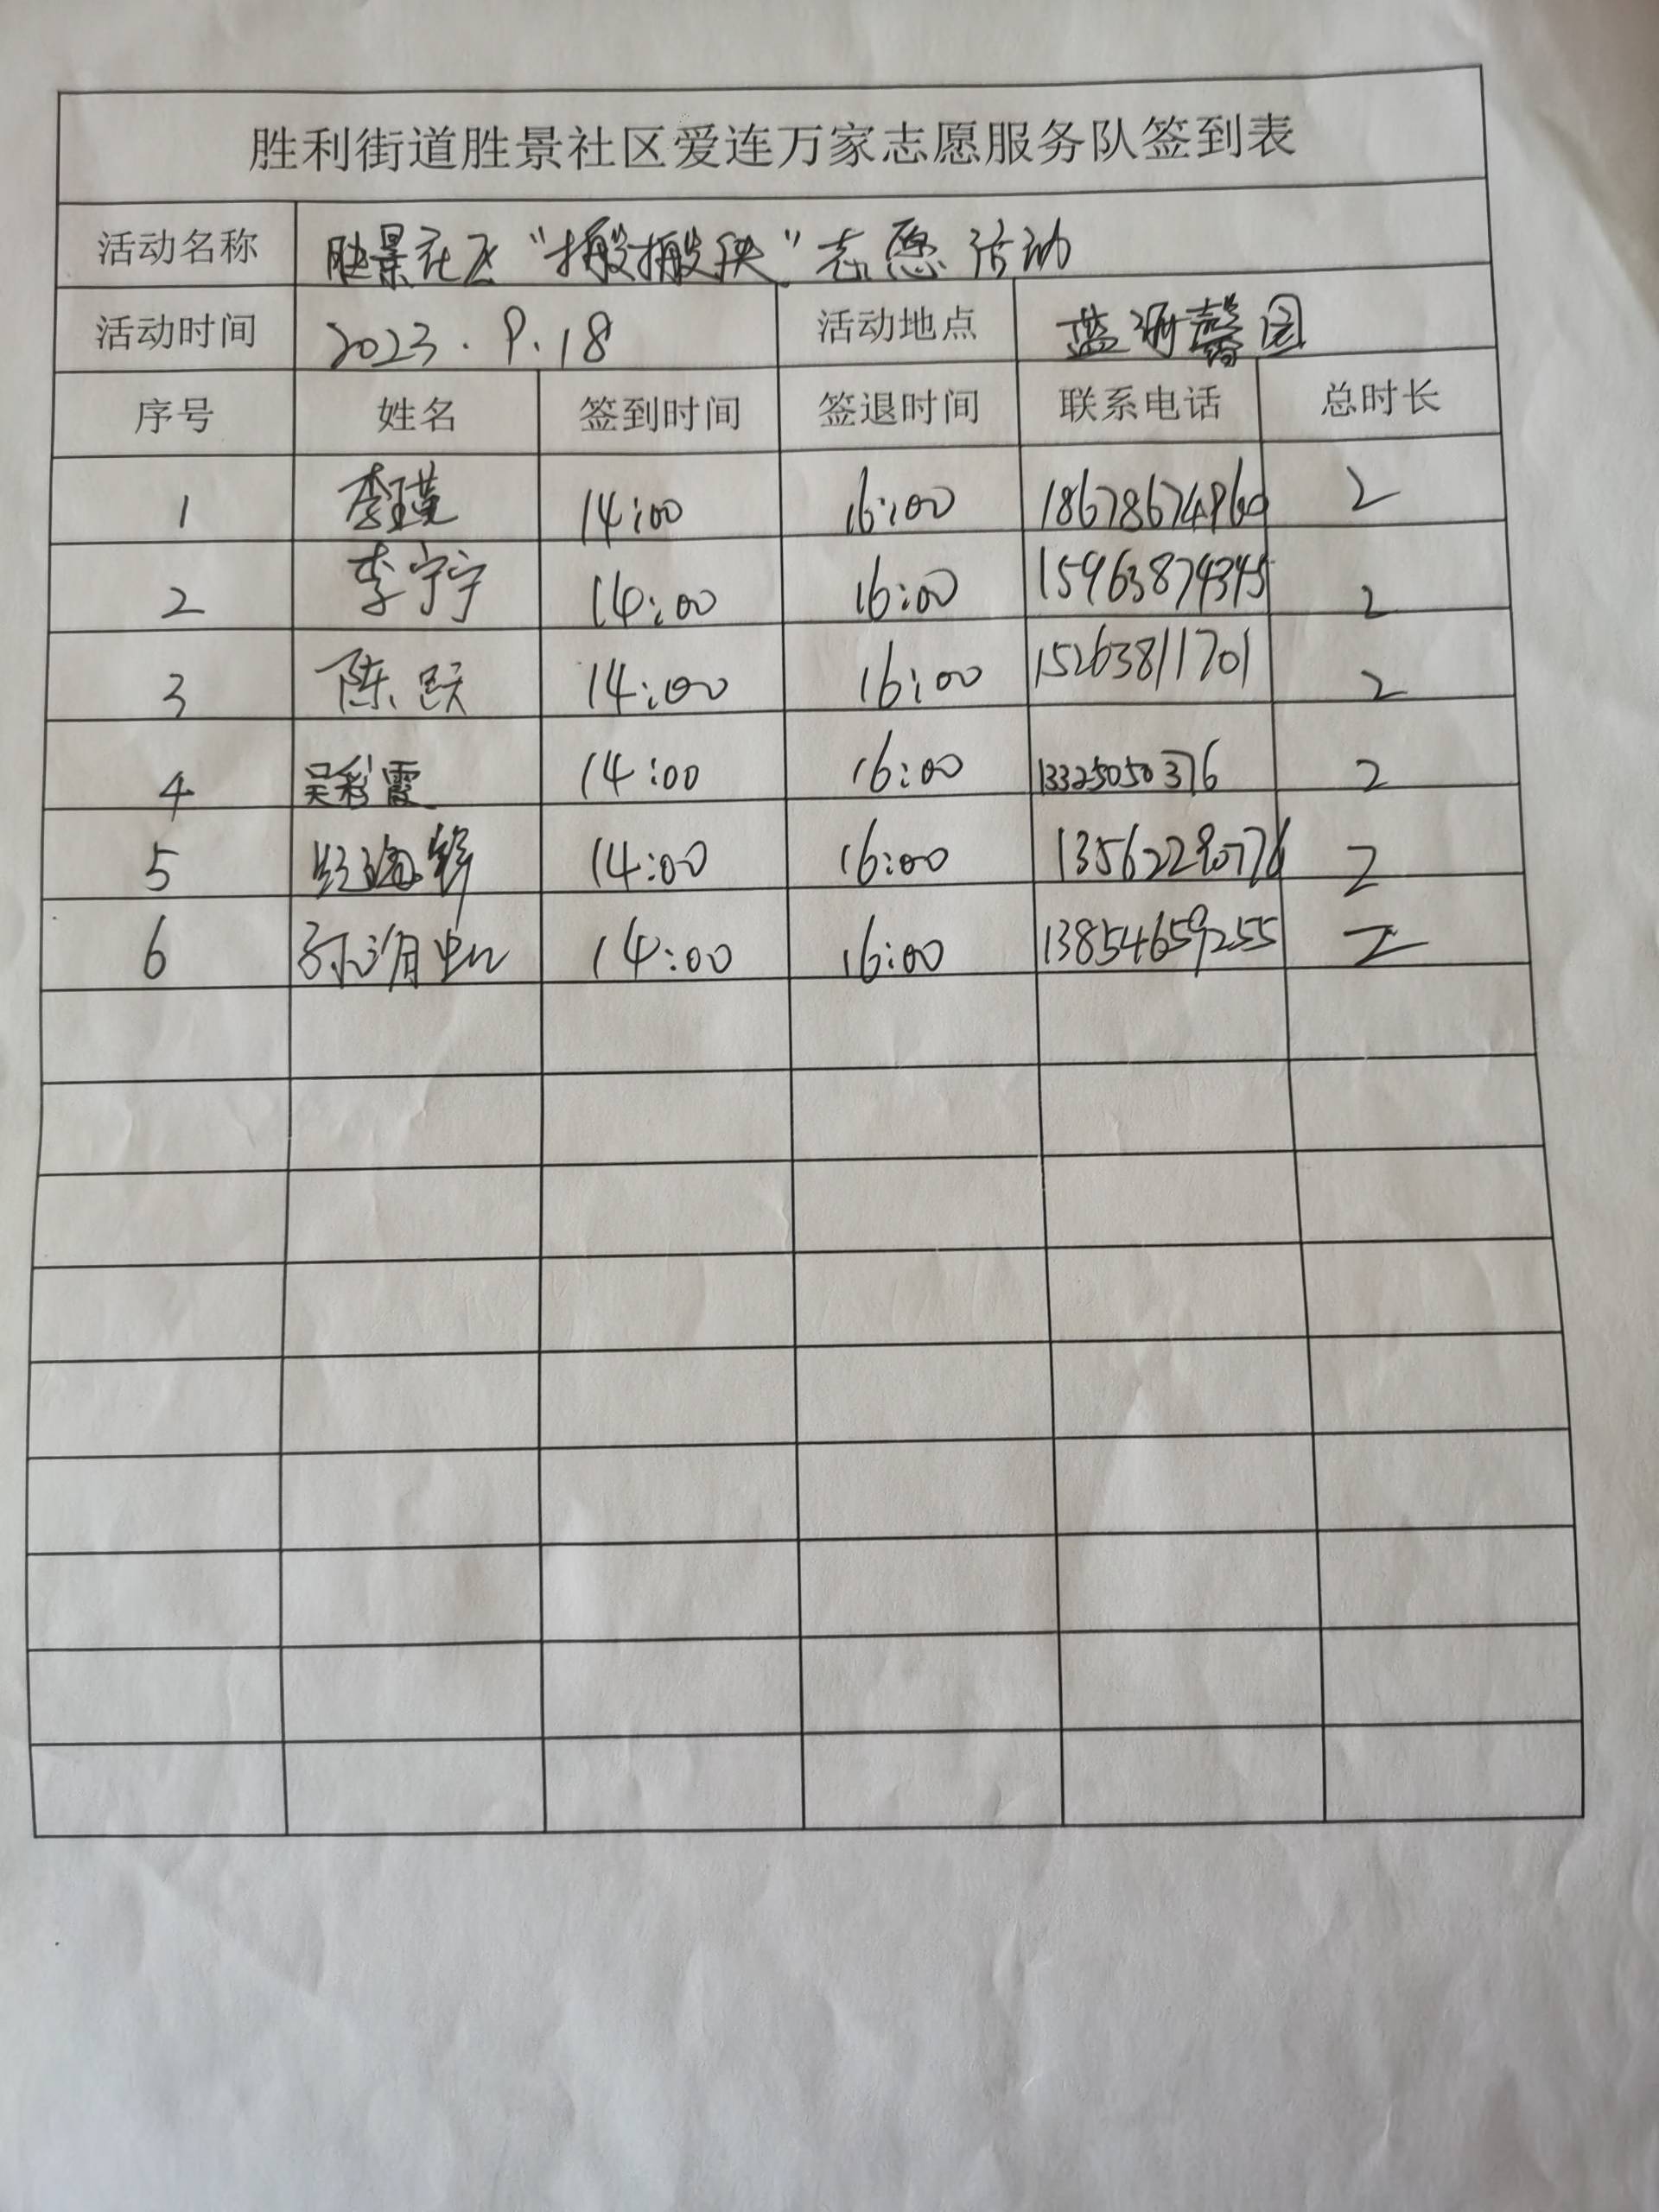 胜利街道胜景社区爱连万家志愿服务队签到表
活动名称 胜景社区“搬搬块”志愿活动
活动时间 2023.9.18 活动地点 蓝馨园
序号 姓名 签到时间 签退时间 联系电话 总时长
1 李瑾 14:00 16:00 18678674960 2
2 李宁宁 14:00 16:00 15963874345 2
3 陈跃 14:00 16:00 15263811701 2
4 吴彩霞 14:00 16:00 13325050376 2
5 14:00 16:00 13562280776 2
6 14:00 16:00 13854659255 2